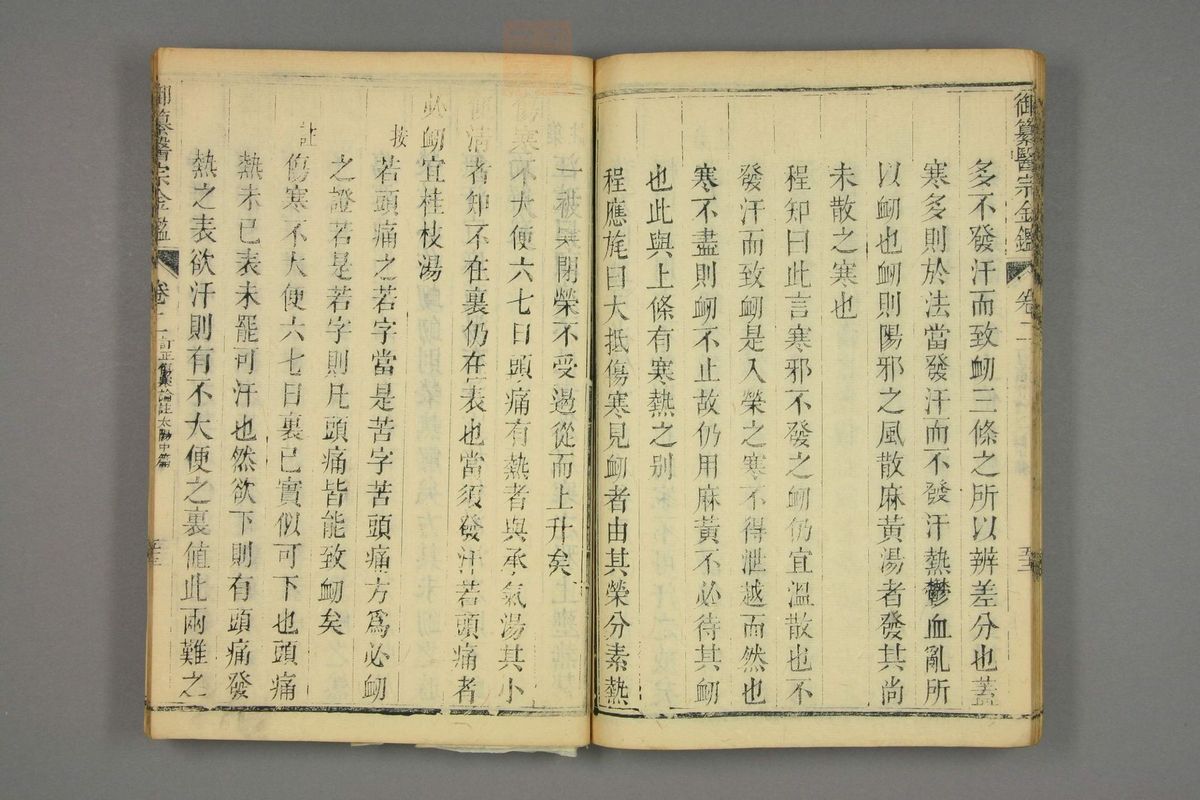 御纂醫宗金鑑 卷二
多不發汗而致衂三條之所以辨差分也蓋
寒多則於法當發汗而不發汗熱鬱血亂所
以衂也衂則陽邪之風散麻黃湯者發其尚
未散之寒也
程知曰此言寒邪不發之衂仍宜溫散也不
發汗而致衂是入榮之寒不得泄越而然也
寒不盡則衂不止故仍用麻黃不必待其衂
也此與上條有寒熱之別
程應旄曰大抵傷寒見衂者由其榮分素熱
一被寒閉榮不受遏從而上升矣
傷寒不大便六七日頭痛有熱者與承氣湯其小
便清者知不在裏仍在表也當須發汗若頭痛者
必衂宜桂枝湯
按若頭痛之若字當是苦字苦頭痛方爲必衂
之證若是若字則凡頭痛皆能致衂矣
註傷寒不大便六七日裏已實似可下也頭痛
熱未已表未罷可汗也然欲下則有頭痛發
熱之表欲汗則有不大便之裏值此兩難之
御纂醫宗金鑑 卷二 訂正傷寒論註太陽中篇